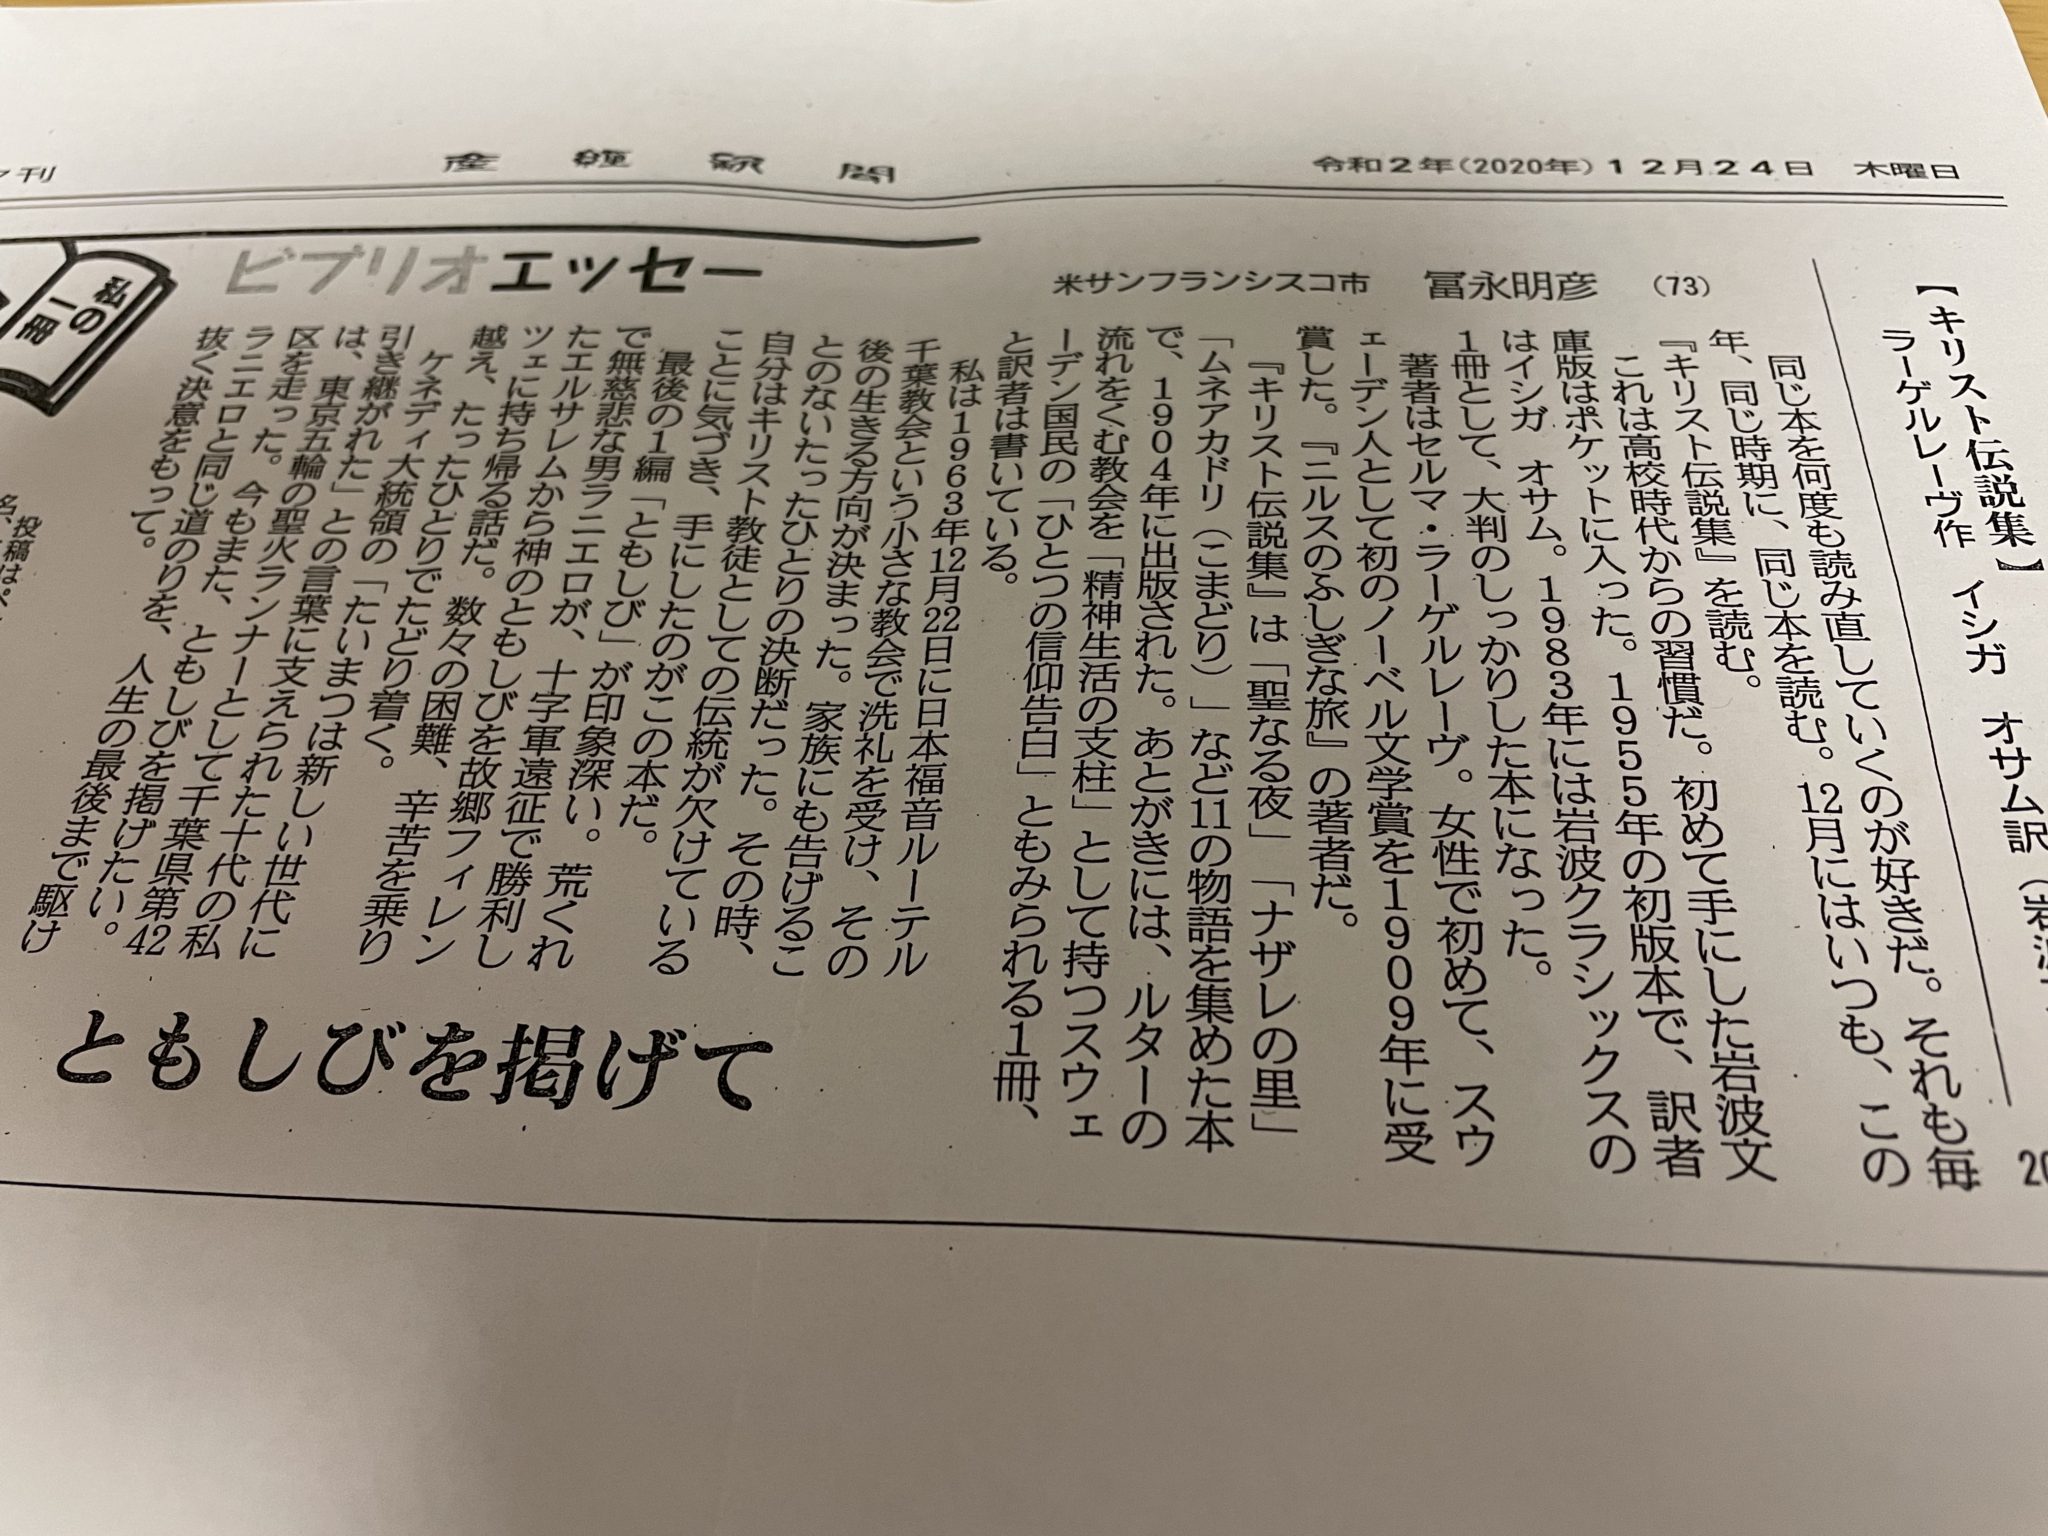 令和2年(2020年)12月24日 木曜日
産經新聞
刊
【キリスト伝説集】
ラーゲルレーヴ作 イシガ オサム訳
同じ本を何度も読み直していくのが好きだ。それも毎
年、同じ時期に、同じ本を読む。12月にはいつも、この
『キリスト伝説集』を読む。
これは高校時代からの習慣だ。初めて手にした岩波文
庫版はポケットに入った。1955年の初版本で、訳者
はイシガ オサム。1983年には岩波クラシックスの
1冊として、大判のしっかりした本になった。
著者はセルマ・ラーゲルレーヴ。女性で初めて、スウ
ェーデン人として初のノーベル文学賞を1909年に受
賞した。『ニルスのふしぎな旅』の著者だ。
『キリスト伝説集』は「聖なる夜」「ナザレの里」
「ムネアカドリ(こまどり)」など11の物語を集めた本
で、1904年に出版された。あとがきには、ルターの
流れをくむ教会を「精神生活の支柱」として持つスウェ
ーデン国民の「ひとつの信仰告白」ともみられる1冊、
と訳者は書いている。
私は1963年12月22日に日本福音ルーテル
千葉教会という小さな教会で洗礼を受け、その
後の生きる方向が決まった。家族にも告げるこ
とのないたったひとりの決断だった。その時、
自分はキリスト教徒としての伝統が欠けている
ことに気づき、手にしたのがこの本だ。
最後の1編「ともしび」が印象深い。荒くれ
で無慈悲な男ラニエロが、十字軍遠征で勝利し
たエルサレムから神のともしびを故郷フィレン
ツェに持ち帰る話だ。数々の困難、辛苦を乗り
越え、たったひとりでたどり着く。
ケネディ大統領の「たいまつは新しい世代に
引き継がれた」との言葉に支えられた十代の私
は、東京五輪の聖火ランナーとして千葉県第42
区を走った。今もまた、ともしびを掲げたい。
ラニエロと同じ道のりを、人生の最後まで駆け
抜く決意をもって。
米サンフランシスコ市 冨永明彦 (73)
ビブリオエッセー
私の一冊
ともしびを掲げて
投稿はペ
名、